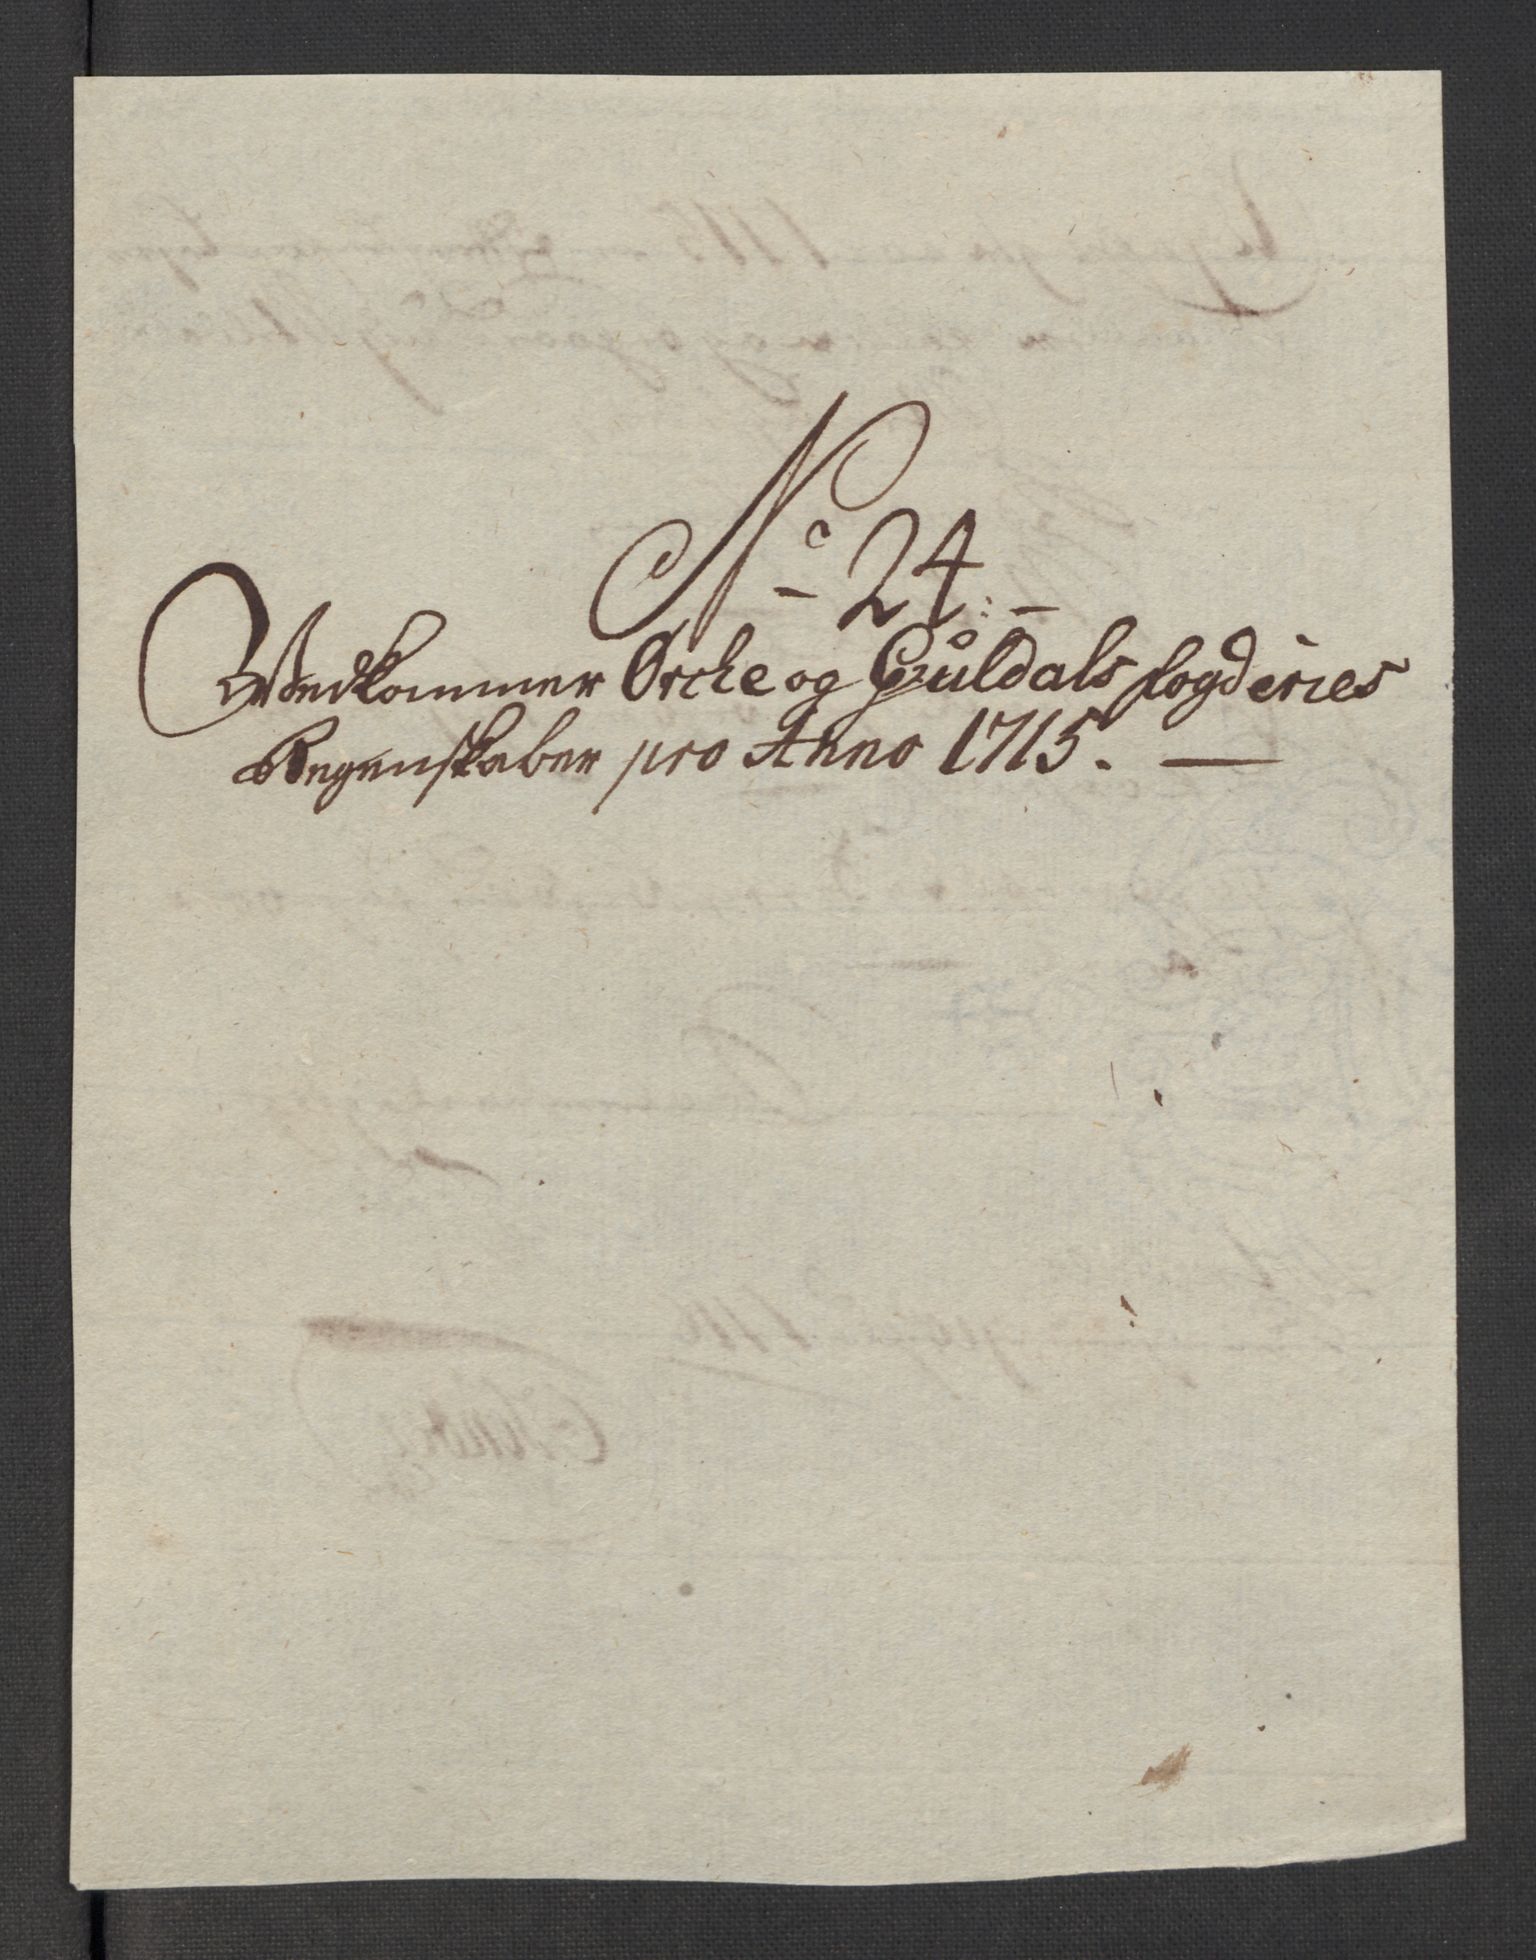 No 24.
Vedkommer Orche og Guldals fogderies
Regenskaber pro Anno 1715.